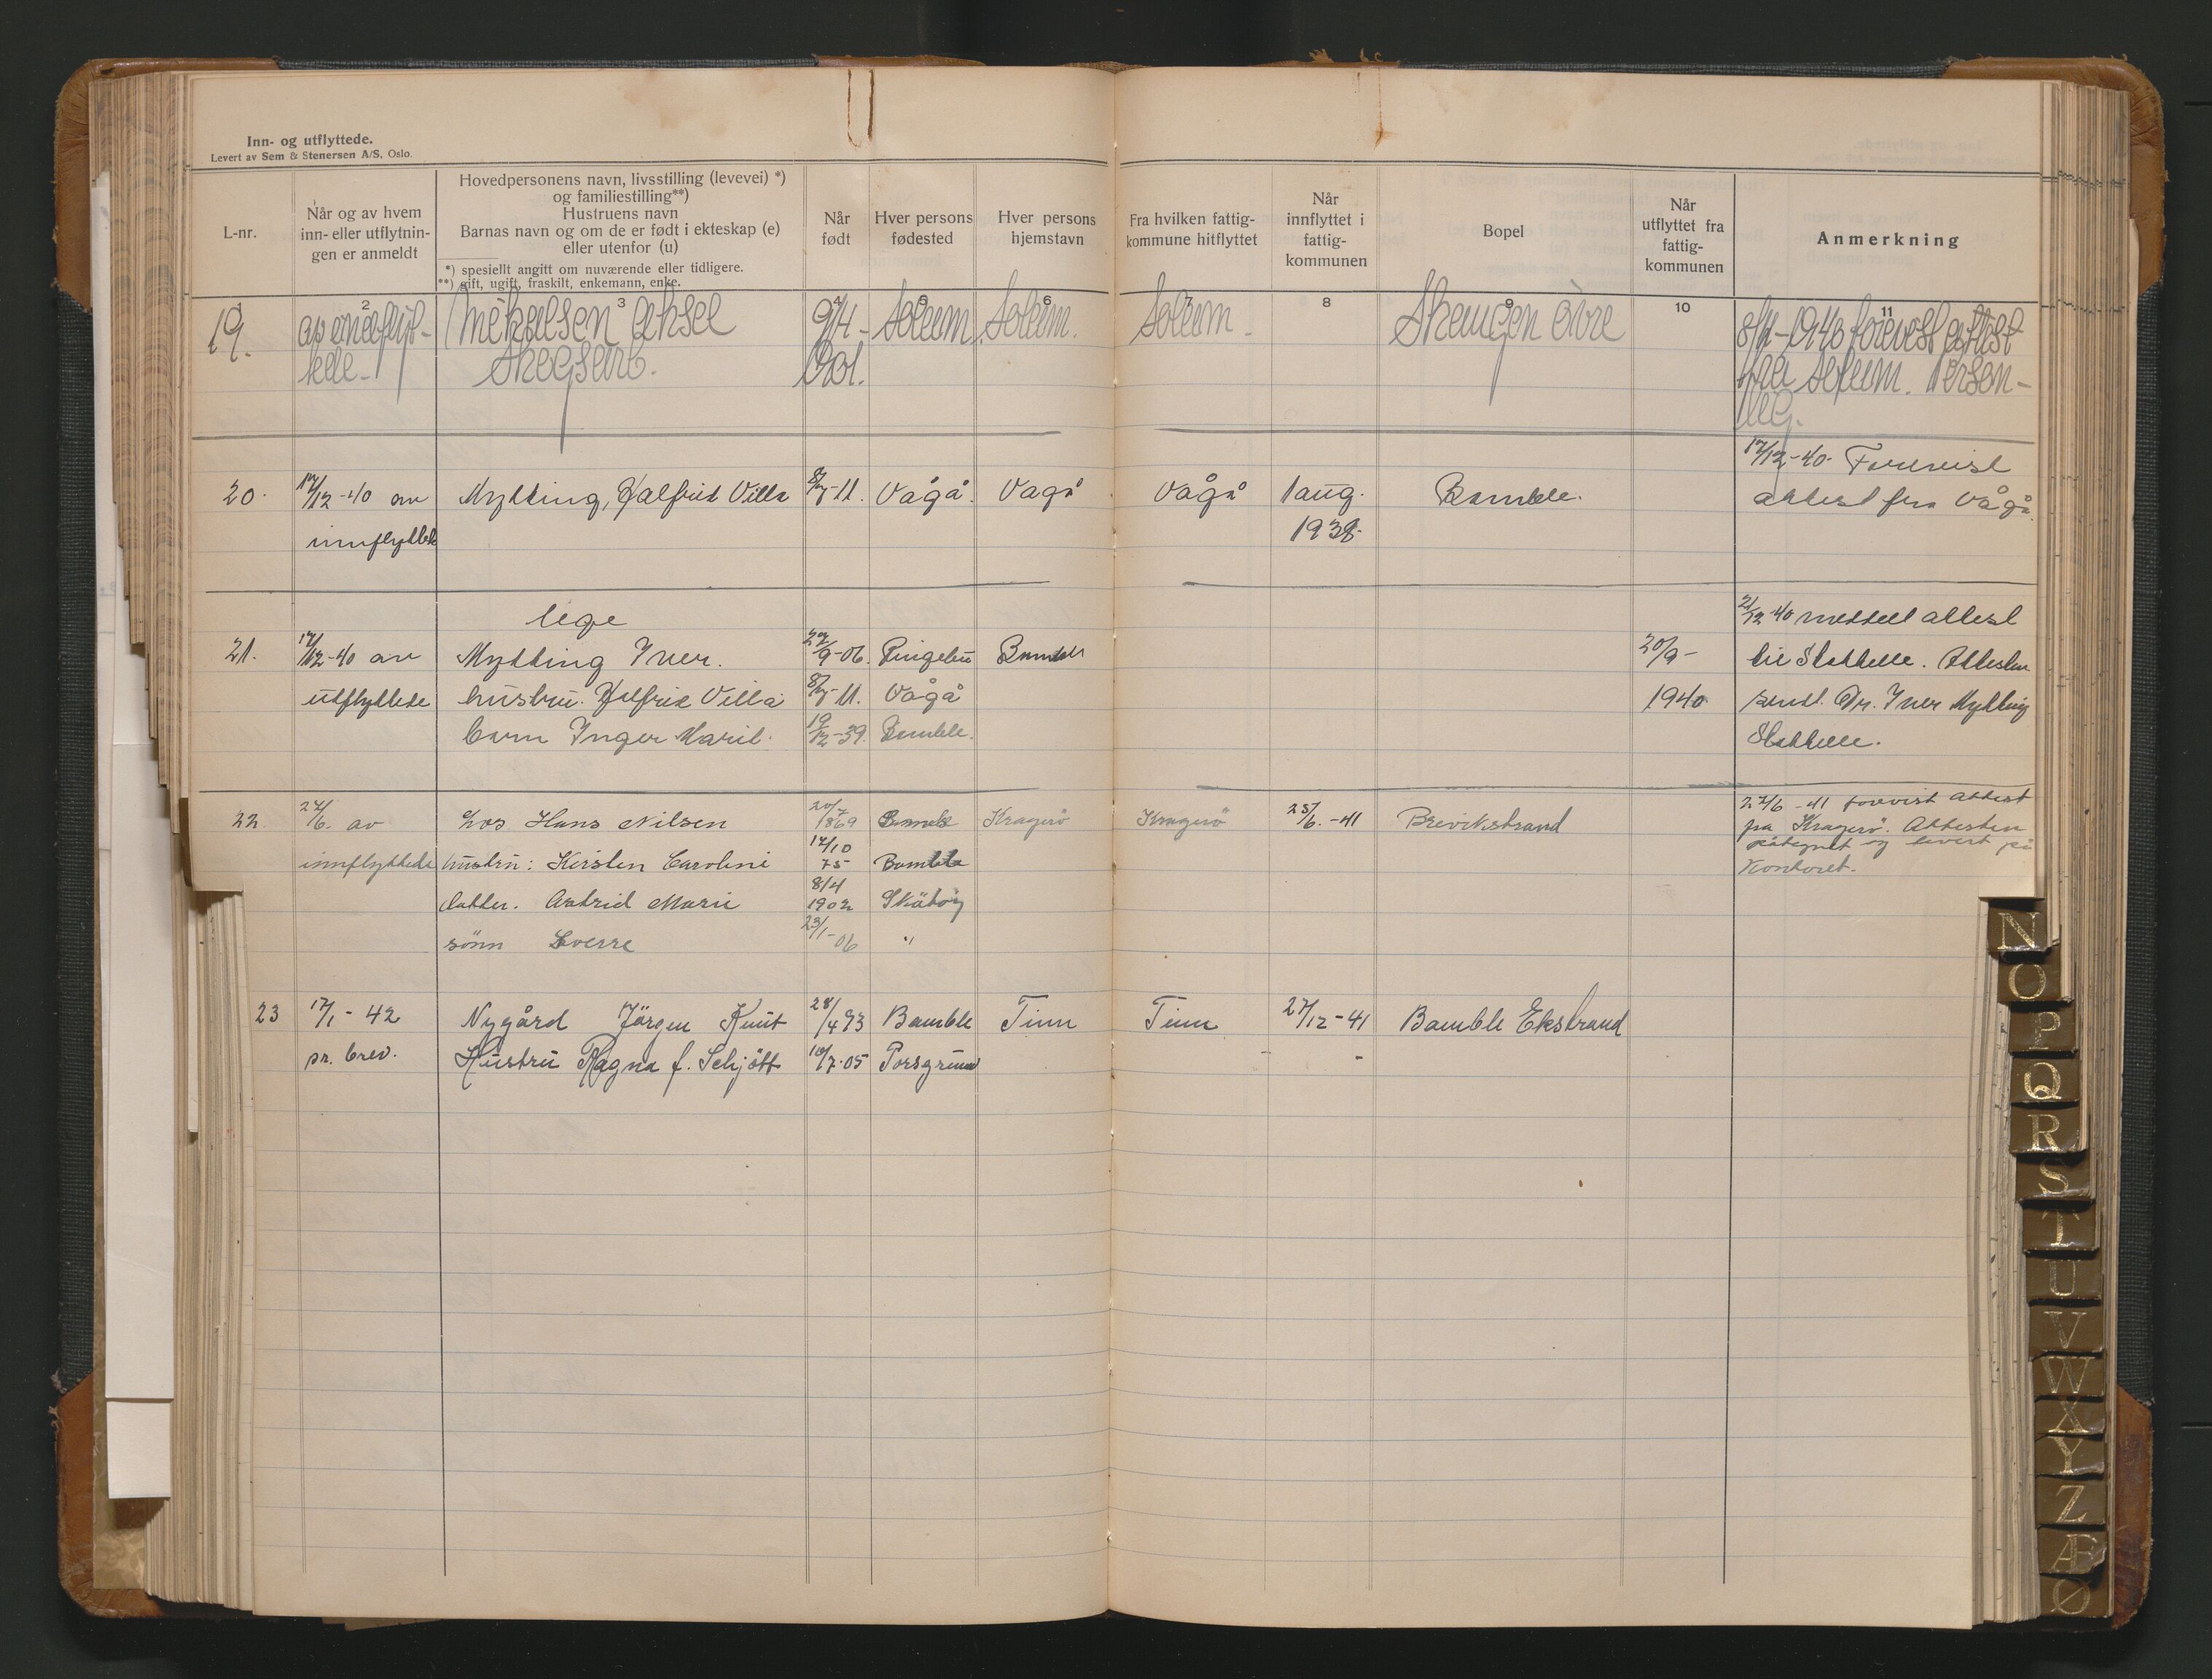 Inn- og utflyttede.
Levert av Sem & Stenersen A/S, Oslo.
L-nr.
Når og av hvem
inn- eller utflytnin-
gen er anmeldt
Hovedpersonens navn, livsstilling (levevei) *)
og familiestilling**)
Hustruens navn
Barnas navn og om de er født i ekteskap (e)
eller utenfor (u)
*) spesiellt angitt om nuværende eller tidligere.
**) gift, ugift, fraskilt, enkemann, enke.
Når
født
Hver persons
fødested
Hver persons
hjemstavn
Fra hvilken fattig-
kommune hitflyttet
Når
innflyttet i
fattig-
kommunen
Bopel
Når
utflyttet fra
fattig-
kommunen
Anmerkning
1 2 3 4 5 6 7 8 9 10 11
19. Mikalsen Aksel 9/4- Solum Solum. Solum- øvre 8/11-1940 forevist attest
Skogsarb. 1901. fra Solum. Person-
lig.
17/12-40. Forevist
20. 17/12-40 av Mytting, Villa 8/7-11. Vågå. Vågå Vågå 1 aug. Bamble. attest fra Vågå.
innflyttede 1938.
lege 21/12-40 meddelt attest
21. 17/12-40 av Mytting Iver. 27/9-06. Ringebu Bamble 20/9- til Stathelle. Attesten
utflyttede hustru. Villa 8/7-11. Vågå 1940. sendt. Dr. Iver Mytting
barn Inger Marit. 19/12-39. Bamble. Stathelle.
22. 27/6. av Los Hans Nilsen 20/7 1869 Bamble Kragerö Kragerö 25/6.-41 Brevikstrand 27/6-41 forevist attest
fra Kragerö. Attesten
innflyttede hustru: Kirsten Caroline 14/10 75 Bamble påtegnet og levert på
Kontoret.
datter. Astrid Marie 8/4 1902 Skåtöy
sönn Sverre 23/1-06 "
23 17/1-42 Nygård Jörgen Knut 28/4 93 Bamble Tinn Tinn 27/12-41 Bamble Ekstrand
pr. brev. Hustru Ragna f. Schjött 18/7-05 Porsgrunn - -
N
O
P
Q
R
S
T
U
V
W
X
Y
Z
Æ
Ø